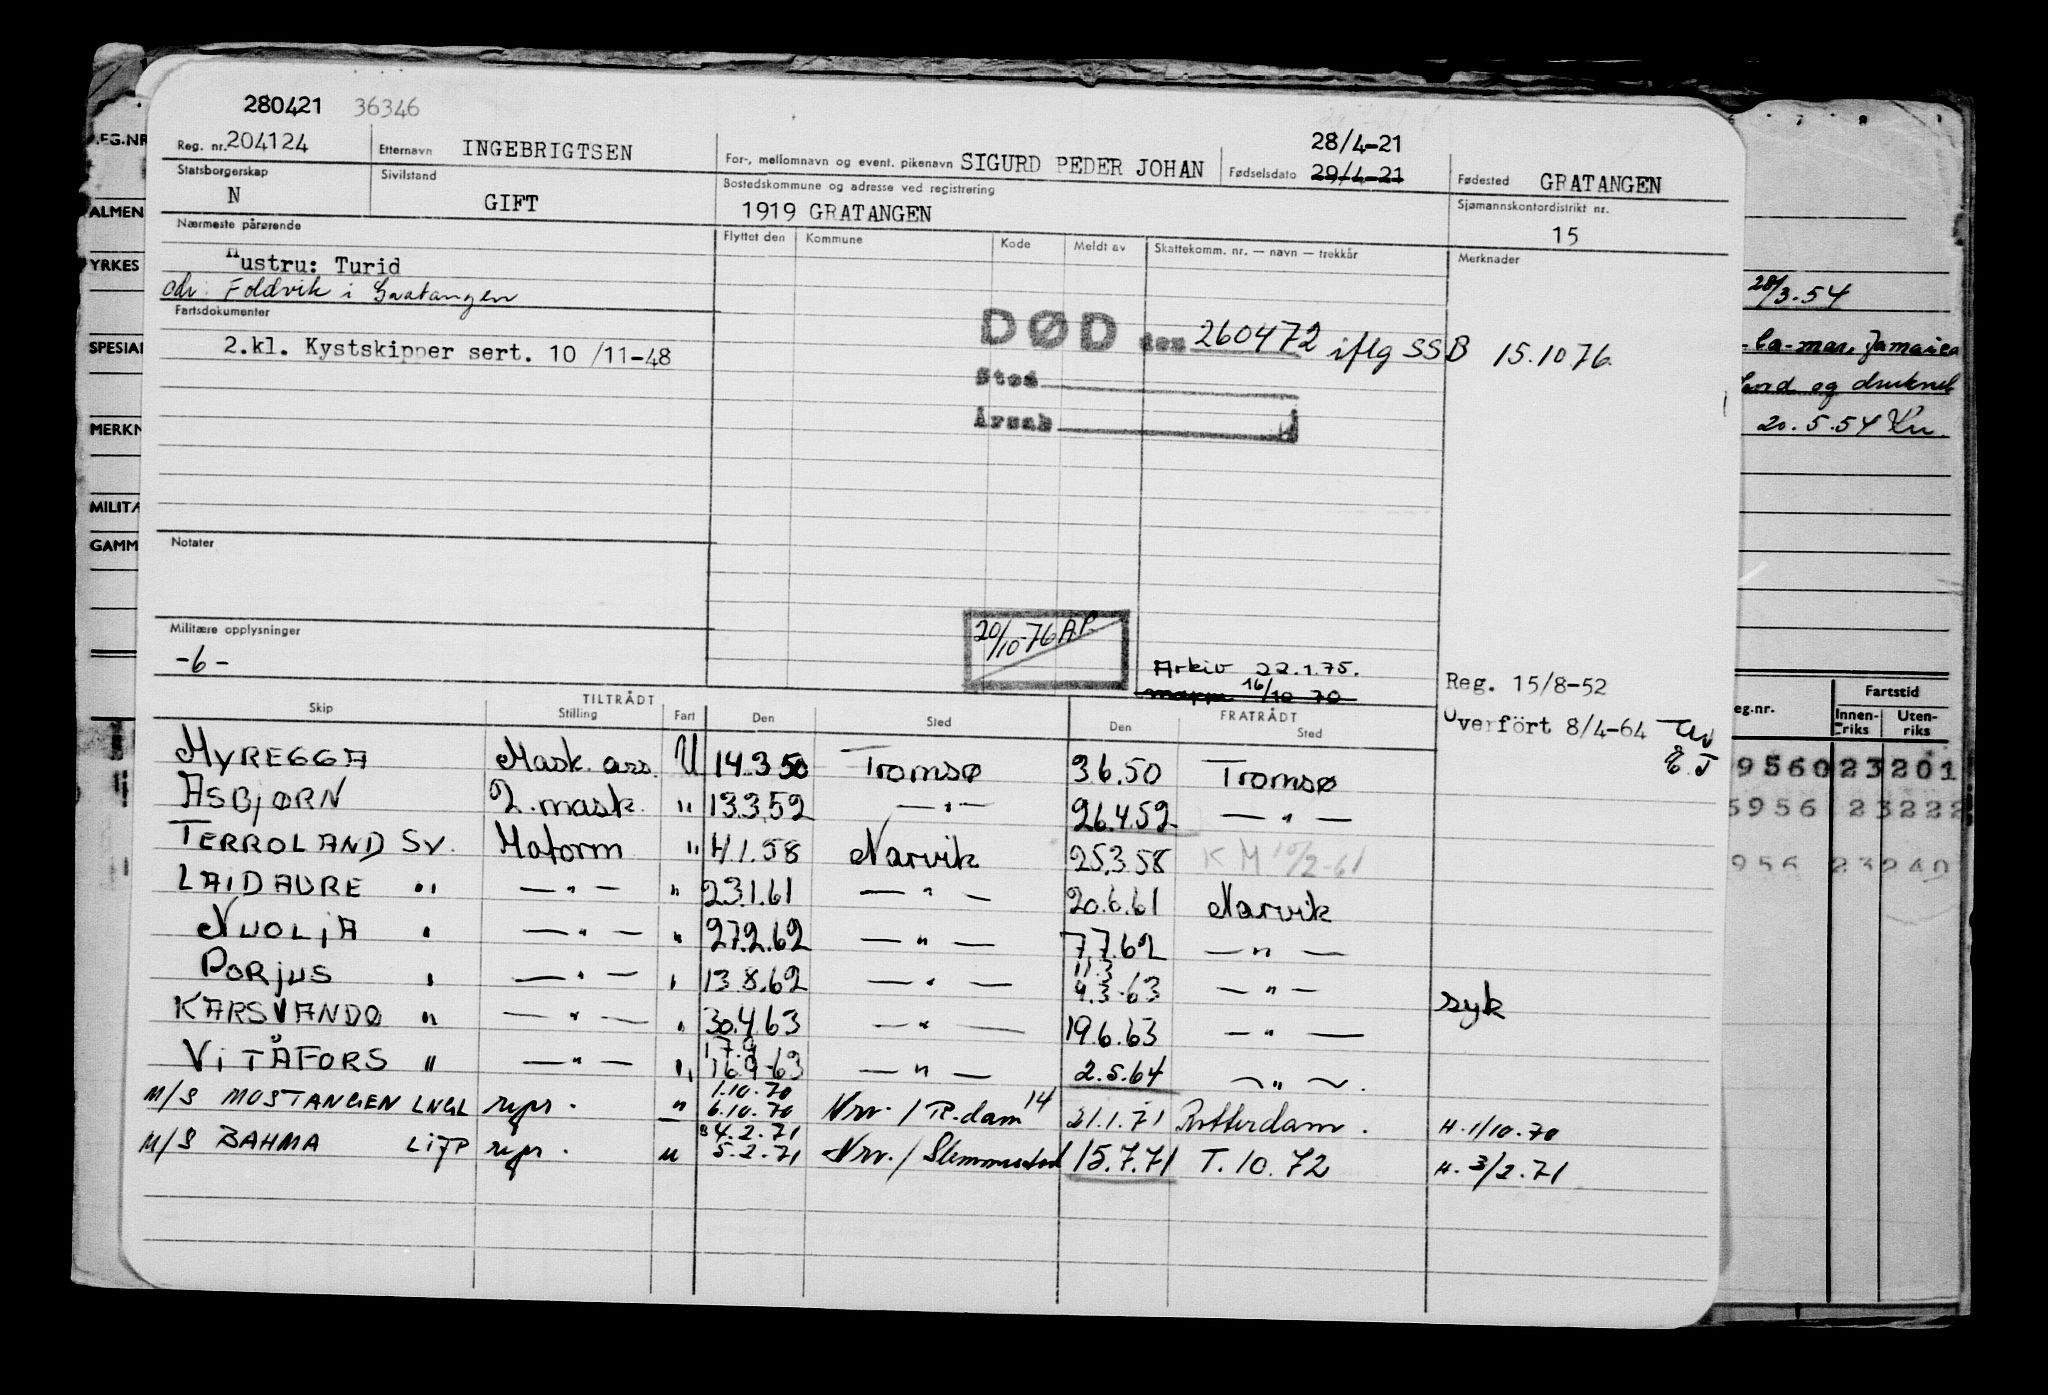 280421 36346
Reg. nr. 204124 Etternavn INGEBRIGTSEN For-, mellomnavn og event. pikenavn SIGURD PEDER JOHAN Fødselsdato 28/4-21 29/4-21 Fødested GRATANGEN
Statsborgerskap N Sivilstand GIFT Bostedskommune og adresse ved registrering 1919 GRATANGEN Sjømannskontordistrikt nr. 15
Nærmeste pårørende Flyttet den Kommune Kode Meldt av Skattekomm. nr. — navn — trekkår Merknader
Hustru: Turid
adr: Foldvik i Gratangen
Fartsdokumenter
2.kl. Kystskipper sert. 10 /11-48
DØD den 260472 iflg SSB 15.10 76.
Sted
Årsak
Notater
Militære opplysninger
-6-
20/10-76 A.P.
Arkiv 22.1.75.
16/10 70
Reg. 15/8-52
Overført 8/4-64
E.J
TILTRÅDT FRATRÅDT
Skip Stilling Fart Den Sted Den Sted
MYREGGA Mask. ass. U 14.3 50 Tromsø 3 6.50 Tromsø
ASBJØRN 2. mask. " 13.3.52 — " — 26.4.52 — " —
TERROLAND SV. Matorm " 4 1.58 Narvik 25.3.58 KM 10/2-61
LAIDAURE " — " — " 23.1.61 — " — 20.6.61 Narvik
NUOLJA " — " — " 27.2.62 — " — 7.7.62 — " —
PORJUS " — " — " 13 8.62 — " — 11.3 4.3-63 — " — syk
KARSVANDO " — " — " 30.4.63 — " — 19.6.63 — " —
VITÅFORS " — " — " 17.9 16.9-63 — " — 2.5.64 — " —.
M/S MOSTANGEN LNGL repr. " 1.10.70 6.10.70 Nrv. / R.dam 14 21.1.71 Rotterdam. H. 1/10.70
M/S BAHMA LIJP repr. u 4.2.71 5.2.71 Nrv. / Slemmestad 15.7.71 T. 10. 72 H. 3/2.71
ALMEN
YRKES
SPESIAL
MERKN
MILITÆ
GAMM
28/3.54
Jamaica
20.5.54
eg.nr. Fartstid
Innen-riks Uten-riks
9560 23 201
5956 23222
956 23240